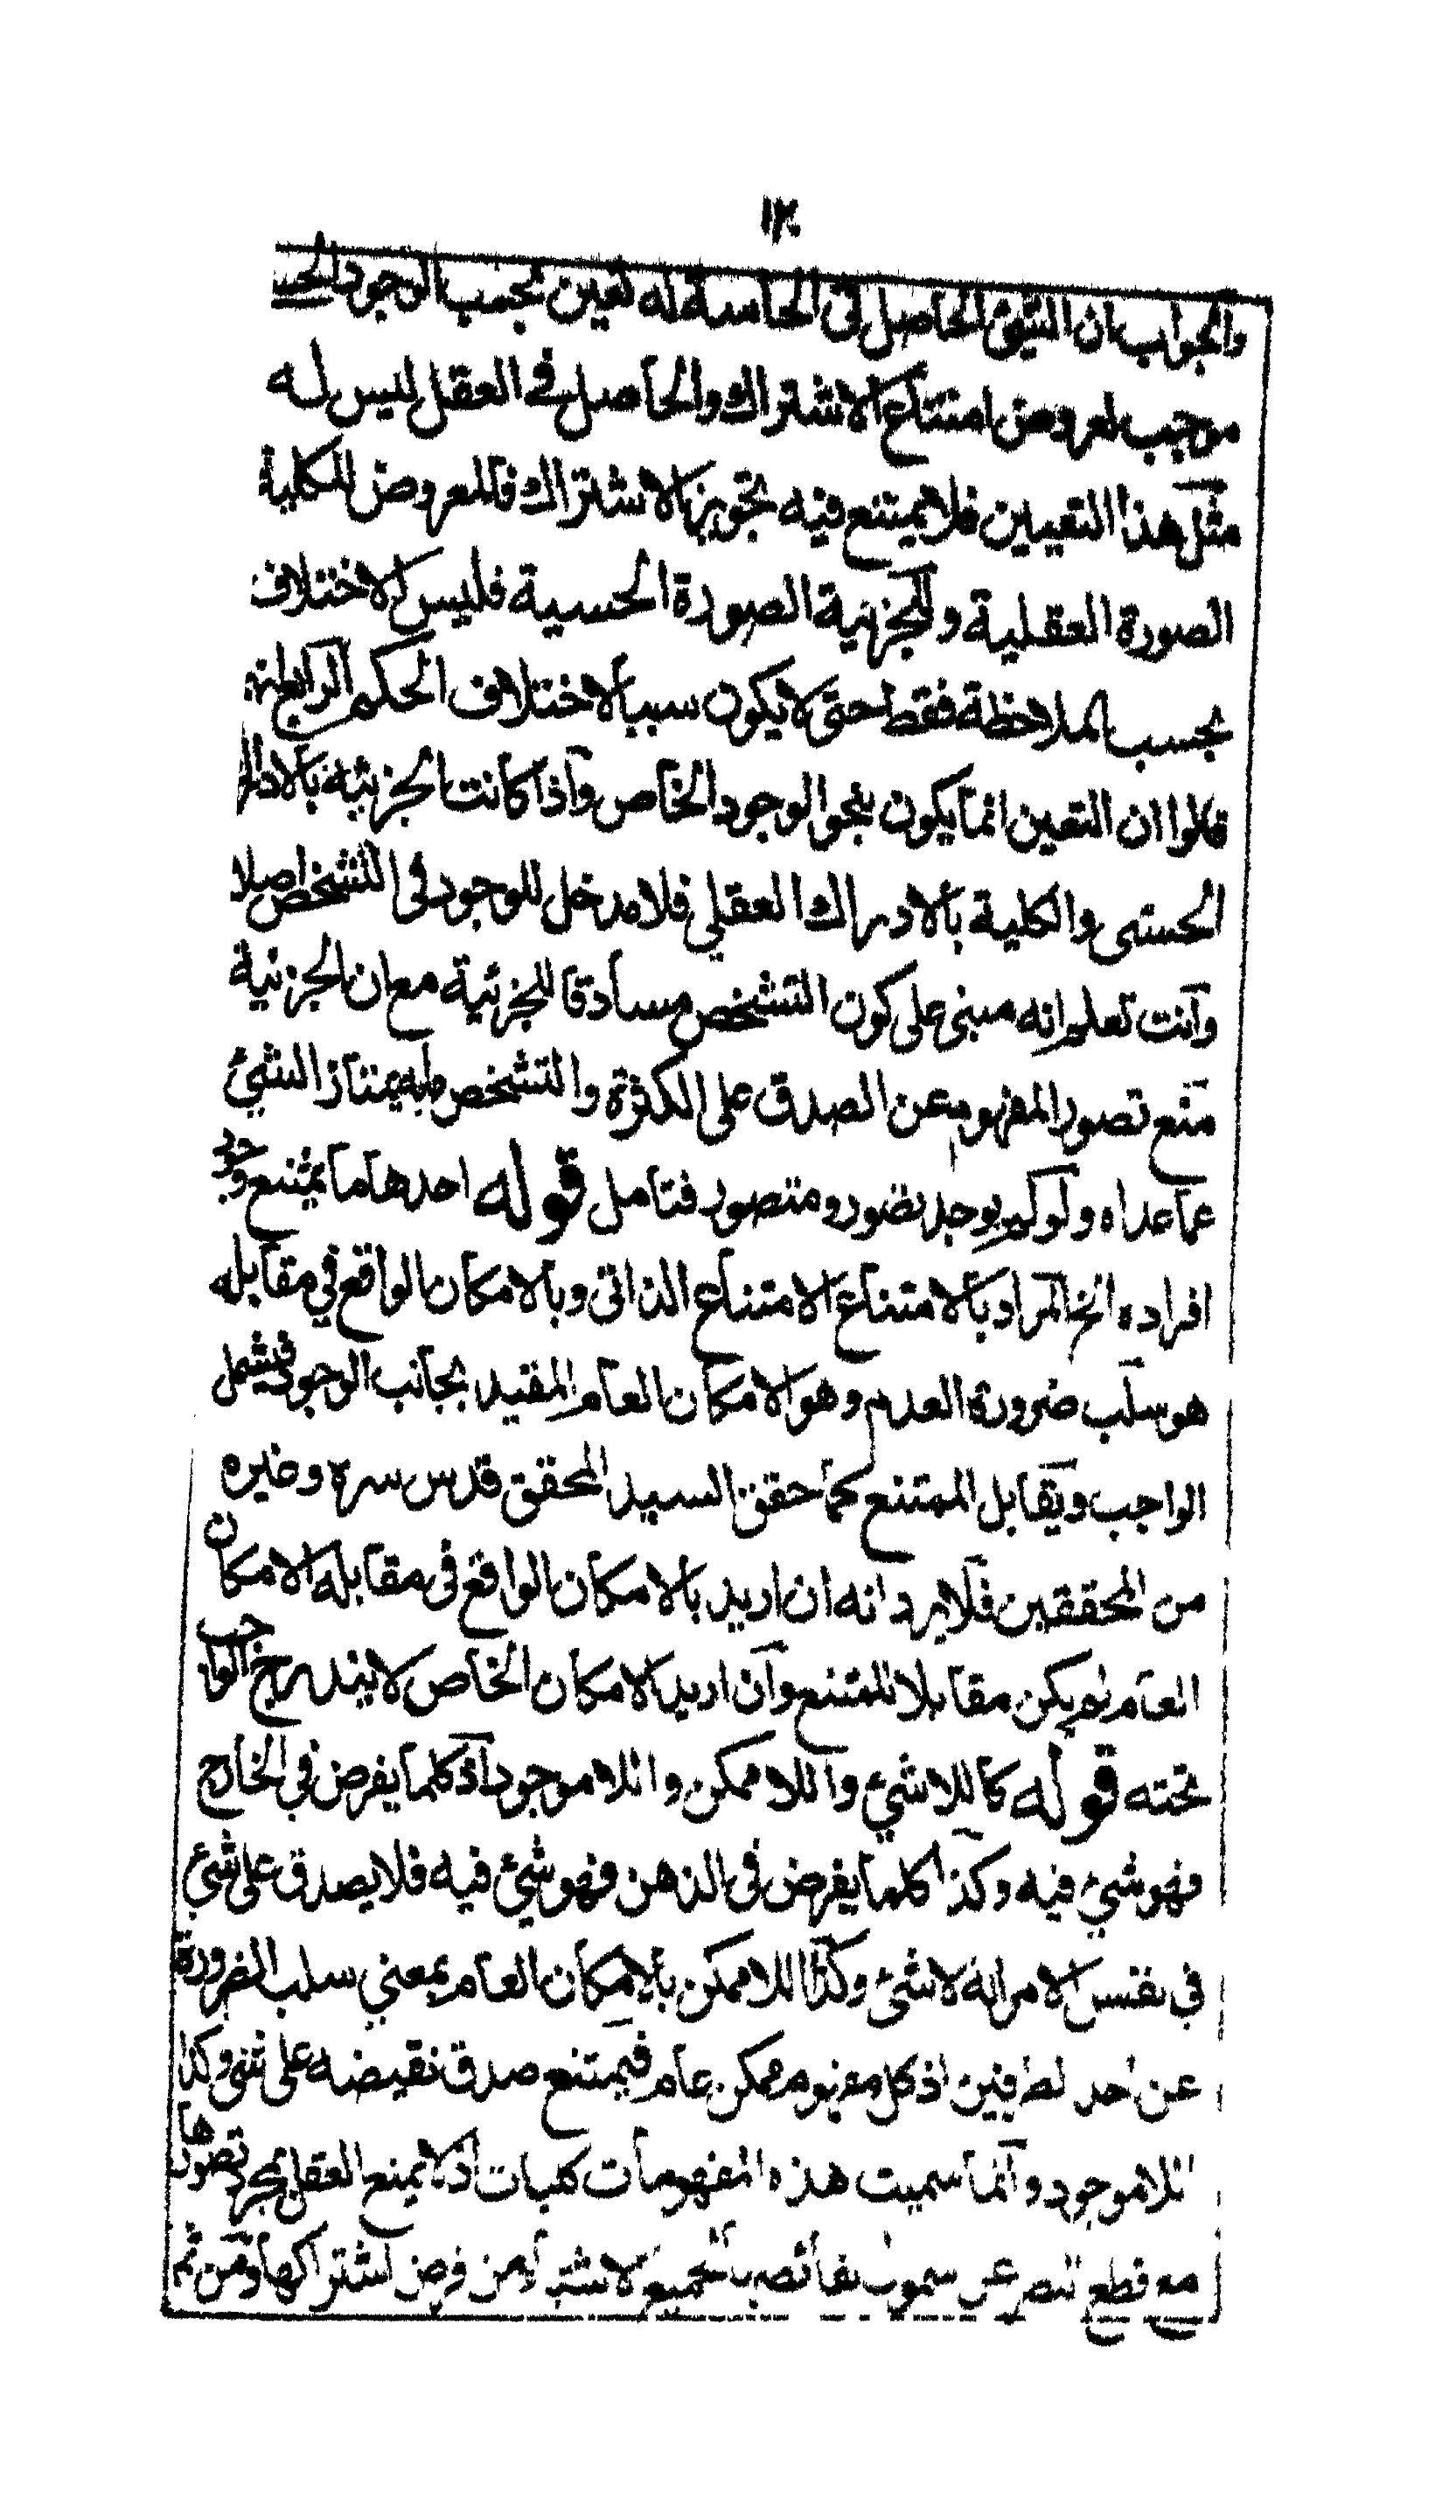 ١٢٠
والجواب ان الشيئ الحاصل فى الحاسة له تعين بحسب الوجود الحسى
موجب لعروض امتناع الاشتراك والحاصل فى العقل ليس له
مثل هذا التعيين فلا يمتنع فيه تجويز الاشتراك فالمعروض للكلية
الصورة العقلية وللجزئية الصورة الحسية فليس الاختلاف
بحسب الملاحظة فقط حتى لا يكون سببا لاختلاف الحكم
قالوا ان التعين انما يكون بنحو الوجود الخاص واذا كانت الجزئية بالادراك
الحسى والكلية بالادراك العقلي فلا مدخل للوجود فى التشخص اصلا
وانت تعلم انه مبنى على كون التشخص مساوقا للجزئية مع ان الجزئية
منع تصور المفهوم عن الصدق على الكثرة والتشخص ما به يمتاز الشيئ
عما عداه ولو لم يوجد تصور ومتصور فتامل قوله احدها ما يمتنع وجود
افراده الخ المراد بالامتناع الامتناع الذاتى وبالامكان الواقع في مقابله
هو سلب ضرورة العدم وهو الامكان العام المقيد بجانب الوجود فيشمل
الواجب ويقابل الممتنع كما حقق السيد المحقق قدس سره وغيره
من المحققين فلا يرد انه ان اريد بالامكان الواقع فى مقابله الامكان
العام لم يكن مقابلا للمتنع وان اريد الامكان الخاص لا يندرج الواجب
تحته قوله كاللاشيئ واللاممكن واللاموجود اذ كلما يفرض في الخارج
فهو شيئ فيه وكذا كلما يفرض فى الذهن فهو شيئ فيه فلا يصدق على شيئ
في نفس الامر انه لاشيئ وكذا اللاممكن بالامكان العام بمعني سلب الضرورة
عن احد الطرفين اذ كل مفهوم ممكن عام فيمتنع صدق نقيضه على شئ وكذا
اللاموجود وانما سميت هذه المفهومات كليات اذ لا يمنع العقل بمجرد تصورها
مع قطع النظر عن شمول نقائضه بالجميع الاشياء من فرض اشتراكها ومن ثم